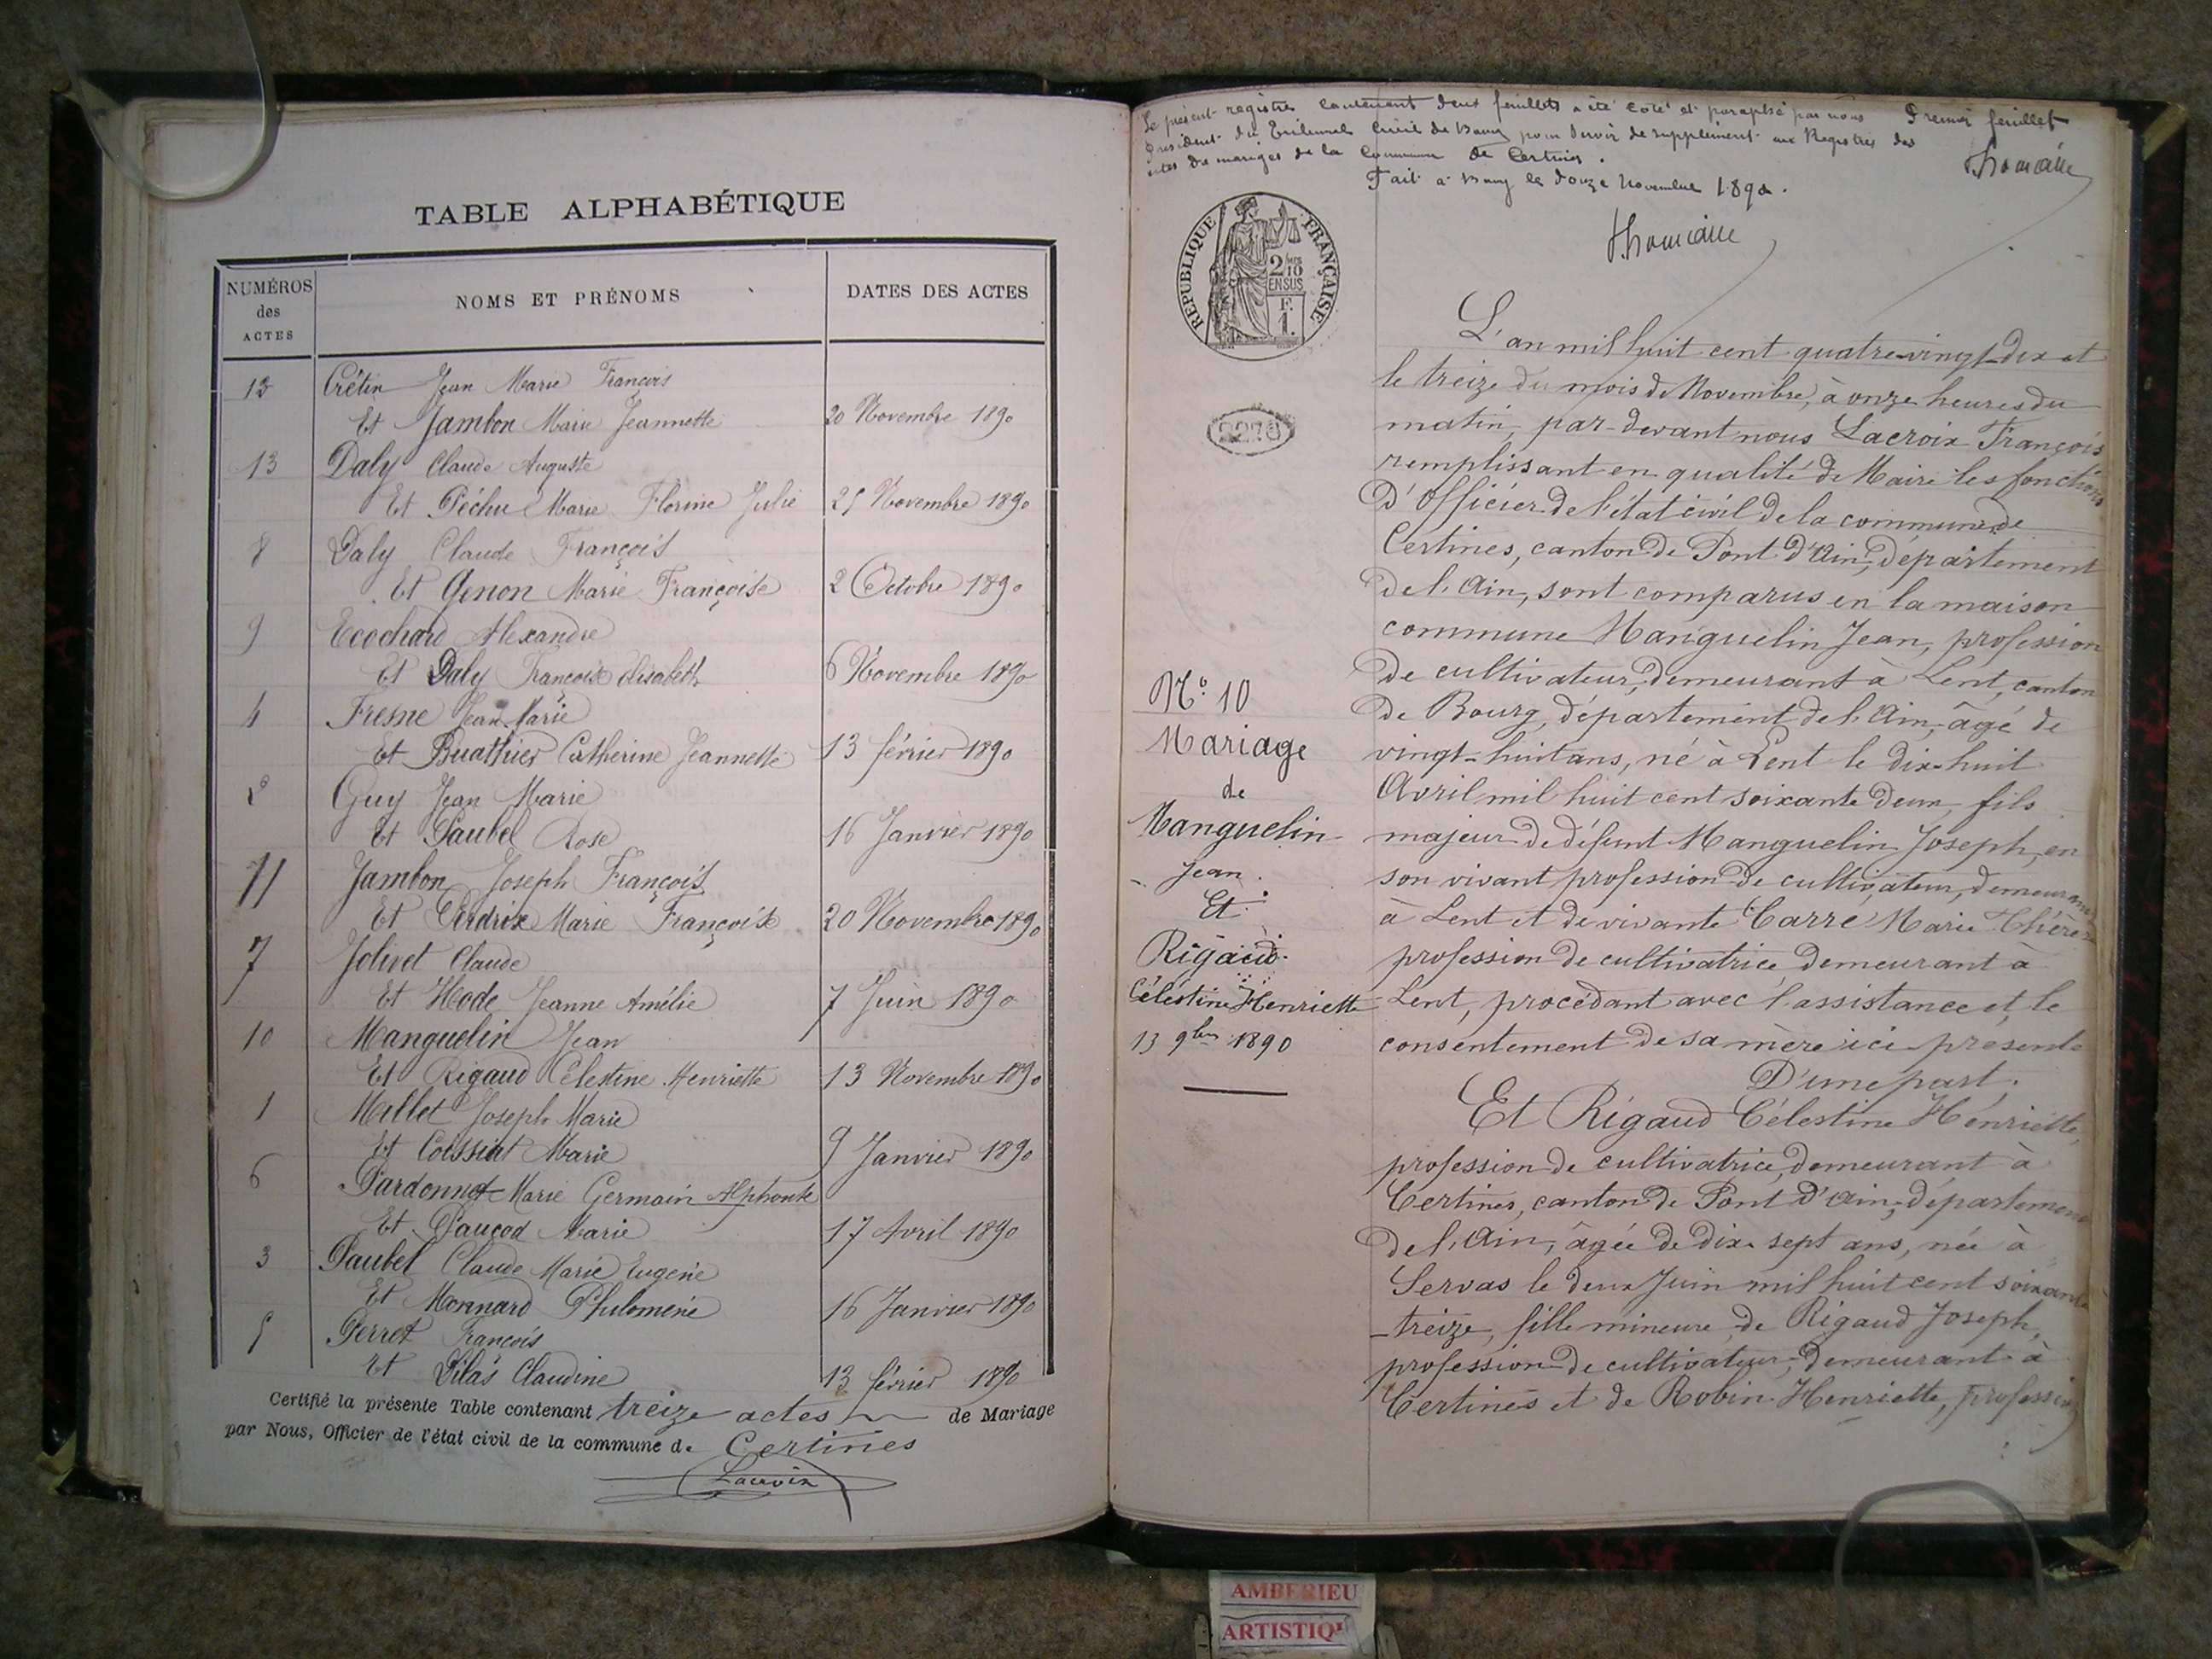 TABLE ALPHABÉTIQUE
NUMÉROS des ACTES
NOMS ET PRÉNOMS
DATES DES ACTES
12 Crétin Jean Marie François
Et Jambon Marie Jeannette 20 Novembre 1890
13 Daly Claude Auguste
Et Péchu Marie Florine Julie 25 Novembre 1890
8 Daly Claude François
Et Genon Marie Françoise 2 Octobre 1890
9 Ecochard Alexandre
Et Daly Françoise Elisabeth 6 Novembre 1890
4 Fresne Jean Marie
Et Buathier Catherine Jeannette 13 février 1890
2 Guy Jean Marie
Et Paubel Rose 16 Janvier 1890
11 Jambon Joseph François
Et Perdrix Marie Françoise 20 Novembre 1890
7 Jolivet Claude
Et Hode Jeanne Amélie 7 Juin 1890
10 Manguelin Jean
Et Rigaud Célestine Henriette 13 Novembre 1890
1 Millet Joseph Marie
Et Coissiat Marie 9 Janvier 1890
6 Pardonnet Marie Germain Alphonse
Et Paucod Marie 17 Avril 1890
3 Paubel Claude Marie Eugène
Et Monnard Philomène 16 Janvier 1890
5 Perret François
Et Pilas Claudine 13 février 1890
Certifié la présente Table contenant treize actes de Mariage
par Nous, Officier de l'état civil de la commune de Certines
Lacroix
Le présent registre contenant deux feuillets a été coté et paraphé par nous Premier feuillet
Président du Tribunal Civil de Bourg pour servir de supplément aux Registres des
actes de mariages de la Commune de Certines.
Fait à Bourg le douze Novembre 1890.
RÉPUBLIQUE FRANÇAISE
2/10 EN SUS
F. 1.
L'an mil huit cent quatre-vingt-dix et
le treize du mois de Novembre, à onze heures du
matin, par-devant nous Lacroix François
remplissant en qualité de Maire les fonctions
d'Officier de l'état civil de la commune de
Certines, canton de Pont d'Ain, département
de l'Ain, sont comparus en la maison
commune Manguelin Jean, profession
de cultivateur, demeurant à Lent, canton
de Bourg, département de l'Ain, âgé de
vingt-huit ans, né à Lent le dix-huit
Avril mil huit cent soixante deux, fils
majeur de défunt Manguelin Joseph, en
son vivant profession de cultivateur, demeurant
à Lent et de vivante Carre Marie Thérèse
profession de cultivatrice demeurant à
Lent, procédant avec l'assistance et le
consentement de sa mère ici présente
D'une part.
Et Rigaud Célestine Henriette,
profession de cultivatrice, demeurant à
Certines, canton de Pont d'Ain, département
de l'Ain, âgée de dix-sept ans, née à
Servas le deux Juin mil huit cent soixante
-treize, fille mineure de Rigaud Joseph,
profession de cultivateur, demeurant à
Certines et de Robin Henriette, profession
N° 10
Mariage
de
Manguelin
Jean
Et
Rigaud
Célestine Henriette
13 9bre 1890
AMBERIEU
ARTISTIQU